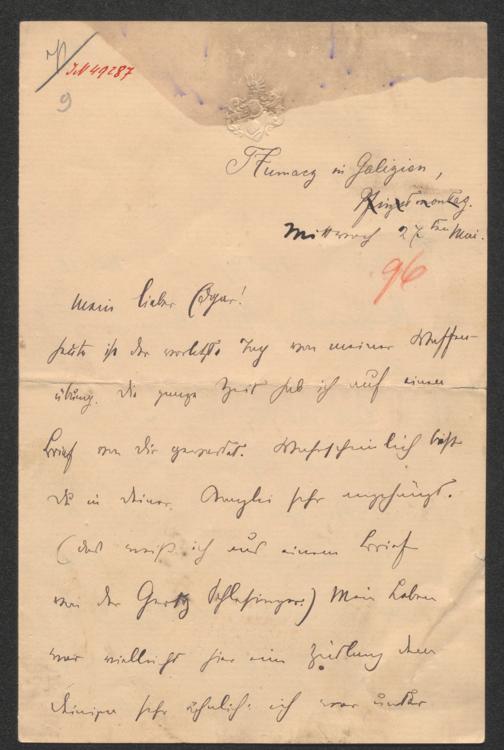 I.N 49287
9
Tlumacz in Galizien,
Pfingstmontag.
Mittwoch 27ten Mai.
96
Mein lieber Edgar!
heute ist der vorletzte Tag von meiner Waffen-
übung. Die ganze Zeit hab ich auf einen
Brief von Dir gewartet. Wahrscheinlich bist
Du in Deiner Kanzlei sehr angehängt.
(das weiß ich aus einem Brief
von der Gerty Schlesinger.) Mein Leben
war vielleicht hier eine Zeitlang dem
Deinigen sehr ähnlich: ich war unter